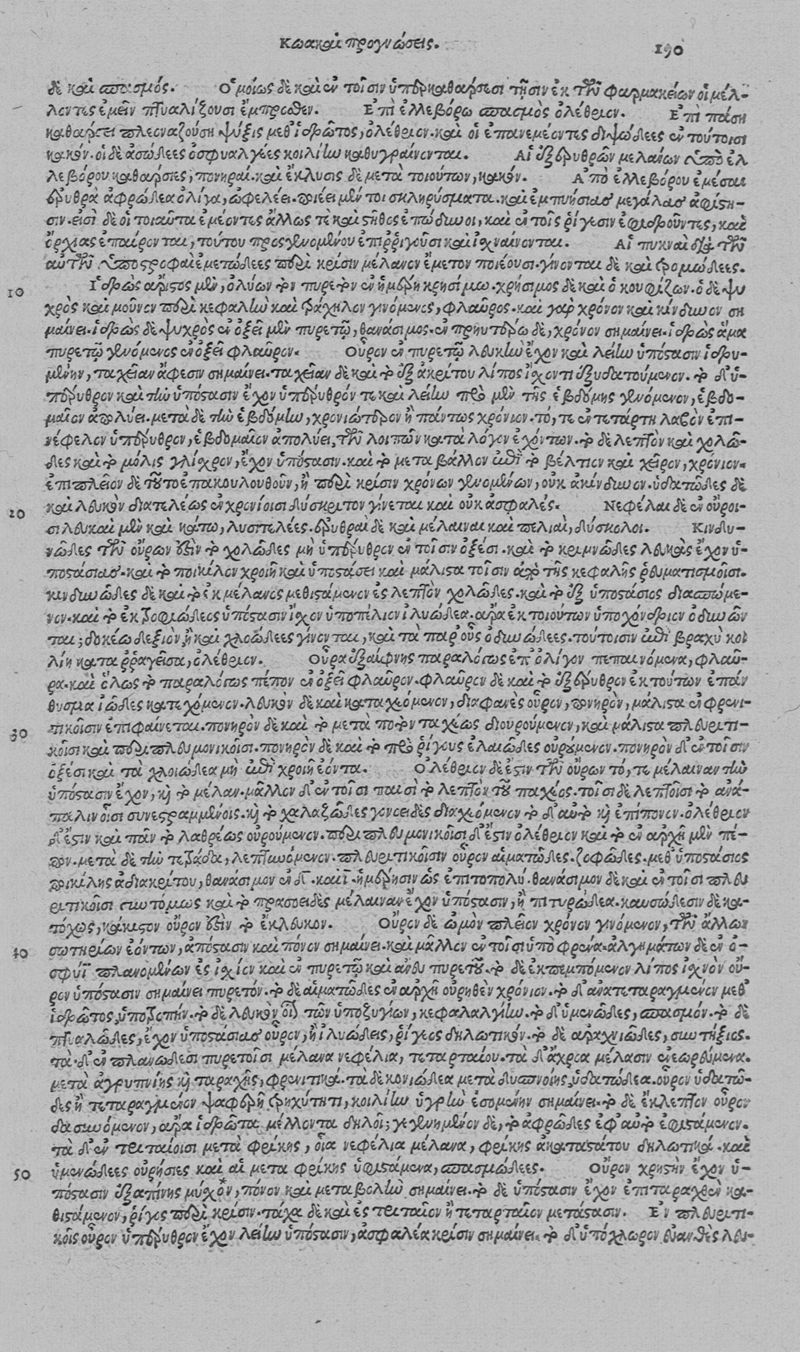 Κωακαὶ προγνώσεις.
190
δὲ καὶ σπασμός. Ὁμοίως δὲ καὶ ἐν τοῖσιν ὑπερκαθάρσεσι τῇσιν ἐκ τῶν φαρμακείων οἱ μέλ-
λοντες ἐμεῖν πτυαλίζουσι ἔμπροσθεν. Ἐπὶ ἑλλεβόρῳ σπασμὸς ὀλέθριον. Ἐπὶ πάσῃ
καθάρσει πλεοναζούσῃ ψύξις μεθ' ἱδρῶτος, ὀλέθριον. καὶ οἱ ἐπανεμέοντες διψώδεες ἐν τούτοισι
κακόν. οἱ δὲ ἀσώδεες ὀσφυαλγέες κοιλίην καθυγραίνονται. Αἱ ἐξέρυθρον μελαίναι ὑπὸ ἑλ
λεβόρου καθάρσιες, πονηραί. καὶ ἔκλυσις δὲ μετὰ τοιούτων, κακόν. Ἀπὸ ἑλλεβόρου ἐμέσαι
ἐρυθρὰ ἀφρώδεα ὀλίγα, ὠφελέει. ποιέει μέν τοι σκληρύσματα. καὶ ἐμπυήσιας μεγάλας ἀφίστη-
σιν. εἰσὶ δὲ οἱ τοιαῦτα ἐμέοντες ἄλλως τε καὶ στῆθος ἐπώδυνοι, καὶ ἐν τοῖς ῥίγεσιν ἐφιδροῦντες, καὶ
ὄρχιας ἐπαίρονται, τούτου προσγενομένου ἐπιρριγοῦσι καὶ ἰσχναίνονται. Αἱ πυκναὶ διὰ τῶν
αὐτῶν ὑποστροφαὶ ἐμετώδεες περὶ κρίσιν μέλανον ἔμετον ποιέουσι. γίνονται δὲ καὶ τρομώδεες.
10
Ἱδρὼς ἄριστος μὲν, ὁ λύων τὸν πυρετὸν ἐν ἡμέρῃ κρησίμῳ. χρήσιμος δὲ καὶ ὁ κουφίζων. ὁ δὲ ψυ
χρὸς καὶ μοῦνον περὶ κεφαλὴν καὶ τράχηλον γινόμενος, φλαῦρος. καὶ γὰρ χρόνον καὶ κίνδυνον ση
μαίνει. ἱδρὼς δὲ ψυχρὸς ἐν ὀξεῖ μὲν πυρετῷ, θανάσιμος. ἐν πρηυτέρῳ δὲ, χρόνον σημαίνει. ἱδρὼς ἅμα
πυρετῷ γενόμενος ἐν ὀξεῖ φλαῦρον. Οὖρον ἐν πυρετῷ λευκὴν ἔχον καὶ λείην ὑπόστασιν ἱδρυ-
μένην, ταχεῖαν ἄφεσιν σημαίνει. ταχεῖαν δὲ καὶ τὸ ἐξ ἀκρίτου λίπος ἴσχοντι ἐξυδατούμενον. τὸ δ' ὑ-
πέρυθρον καὶ τὴν ὑπόστασιν ἔχον ὑπέρυθρόν τε καὶ λείην πρὸ μὲν τῆς ἑβδόμης γενόμενον, ἑβδο-
μαῖον ἀπολύει. μετὰ δὲ τὴν ἑβδόμην, χρονιώτερον ἢ πάντως χρόνιον. τό, τε ἐν τετάρτῃ λαβὸν ἐπι-
νέφελον ὑπέρυθρον, ἑβδομαῖον ἀπολύει, τῶν λοιπῶν κατὰ λόγον ἐχόντων. τὸ δὲ λεπτὸν καὶ χολῶ-
δες καὶ τὸ μόλις γλίσχρον, ἔχον ὑπόστασιν. καὶ τὸ μεταβάλλον ἐπὶ τὸ βέλτιον καὶ χεῖρον, χρόνιον.
ἐπὶ πλεῖον δὲ τοῦτο ἐπακουλουθοῦν, ἢ περὶ κρίσιν χρόνων γενομένων, οὐκ ἀκίνδυνον. ὑδατῶδες δὲ
20
καὶ λευκὸν διατελέως ἐν χρονίοισι δύσκριτον γίνεται καὶ οὐκ ἀσφαλές. Νεφέλαι δὲ ἐν οὔροι-
σι λευκαὶ μὲν καὶ κάτω, λυσιτελέες. ἐρυθραὶ δὲ καὶ μέλαιναι καὶ πελιαὶ, δύσκολοι. Κινδυ-
νῶδες τῶν οὔρων ἐστὶν τὸ χολῶδες μὴ ὑπέρυθρον ἐν τοῖσιν ὀξέσι. καὶ τὸ κριμνῶδες λευκὰς ἔχον ὑ-
ποστάσιας. καὶ τὸ ποικίλον χροιῇ καὶ ὑποστάσει καὶ μάλιστα τοῖσιν ἀπὸ τῆς κεφαλῆς ῥευματισμοῖσι.
κινδυνῶδες δὲ καὶ τὸ ἐκ μέλανος μεθιστάμενον ἐς λεπτὸν χολῶδες. καὶ τὸ ἐξ ὑποστάσιος διασπώμε-
νον. καὶ τὸ ἐκ τροφιώδεος ὑπόστασιν ἴσχον ὑποπέλιον ἰλυώδεα. ἆρα ἐκ τοιούτων ὑποχόνδριον ὀδυνῶν
ται; δοκέω δεξιὸν ἢ καὶ χλοώδεες γίνονται, καὶ τὰ παρ' οὖς ὀδυνώδεες. τούτοισιν ἐπὶ βραχὺ κοι
λίη καταρραγεῖσα, ὀλέθριον. Οὖρα ἐξαίφνης παραλόγως ἐπ' ὀλίγον πεπαινόμενα, φλαῦ-
ρα. καὶ ὅλως τὸ παραλόγως πέπον ἐν ὀξεῖ φλαῦρον. φλαῦρον δὲ καὶ τὸ ἐξέρυθρον ἐκ τούτων ἐπάν
θυσμα ἰῶδες κατεχόμενον. λευκὸν δὲ καὶ καταχεόμενον, διαφανὲς οὖρον, πονηρὸν, μάλιστα ἐν φρενι-
30
τικοῖσιν ἐπιφαίνεται. πονηρὸν δὲ καὶ τὸ μετὰ ποτὸν ταχέως διουρούμενον, καὶ μάλιστα πλευριτι-
κοῖσι καὶ περιπλευμονικοῖσι. πονηρὸν δὲ καὶ τὸ πρὸ ῥίγους ἐλαιῶδες οὐρούμενον. πονηρὸν δ' ἐν τοῖσιν
ὀξέσι καὶ τὰ χλοιώδεα μὴ ἐπὶ χροιῇ ἐόντα. Ὀλέθριον δὲ ἐστὶν τῶν οὔρων τό, τε μέλαιναν τὴν
ὑπόστασιν ἔχον, κὴ τὸ μέλαν. μᾶλλον δ' ἐν τοῖσι παισὶ τὸ λεπτὸν τοῦ παχέος. τοῖσι δὲ λεπτοῖσι τὸ ἀνά-
παλιν οἷσι συνεστραμμένοις. κὴ τὸ χαλαζῶδες γονοειδὲς διαχεόμενον. τὸ δ' αὐτὸ κὴ ἐπίπονον. ὀλέθριον
δ' ἐστὶν καὶ πᾶν τὸ λαθρέως οὐρούμενον. περιπλευμονικοῖσι δ' ἐστὶν ὀλέθριον καὶ τὸ ἐν ἀρχῇ μὲν πέ-
πον. μετὰ δὲ τὴν τετράδα, λεπτυνόμενον. πλευριτικοῖσιν οὖρον αἱματῶδες. ζοφῶδες. μεθ' ὑποστάσιος
ποικίλης ἀδιακρίτου, θανάσιμον ἐν δ. καὶ ι. ἡμέρῃσιν ὡς ἐπιτοπολύ. θανάσιμον δὲ καὶ ἐν τοῖσι πλευ
ριτικοῖσι συντόμως καὶ τὸ πρασοειδὲς μέλαιναν ἔχον ὑπόστασιν, ἢ πιτυρώδεα. καυσώδεσιν δὲ κα-
τόχως, κάκιστον οὖρον ἐστὶν τὸ ἔκλευκον. Οὖρον δὲ ὠμὸν πλεῖον χρόνον γινόμενον, τῶν ἄλλων
40
σωτηρίων ἐόντων, ἀπόστασιν καὶ πόνον σημαίνει. καὶ μᾶλλον ἐν τοῖσι ὑπὸ φρένα. ἀλγημάτων δὲ ἐν ὀ-
σφύϊ πλανωμένων ἐς ἰσχίον καὶ ἐν πυρετῷ καὶ ἄνευ πυρετοῦ. τὸ δὲ ἐκπεμπόμενον λίπος ἰσχνὸν οὖ-
ρον ὑπόστασιν σημαίνει πυρετόν. τὸ δὲ αἱματῶδες ἐν ἀρχῇ οὐρηθὲν χρόνιον. τὸ δ' ἀνατεταραγμένον μεθ'
ἱδρῶτος, ὑποτροπήν. τὸ δὲ λευκὸν οἷ τῶν ὑποζυγίων, κεφαλαλγίην. τὸ δ' ὑμενῶδες, σπασμόν. τὸ δὲ
πτυαλῶδες, ἔχον ὑποστάσιας οὖρον, ἢ ἰλυῶδεις, ῥίγεος δηλωτικόν. τὸ δὲ ἀραχνιῶδες, συντήξιος.
τὰ δ' ἐν πλανώδεσι πυρετοῖσι μέλανα νεφέλια, τεταρταίου. τὰ δ' ἄχροα μέλασιν ἐνεορεύμενα.
μετὰ ἀγρυπνίης κὴ ταραχῆς, φρενιτικά. τὰ δὲ κονιώδεα μετὰ δυσπνοίης ὑδατώδεα. οὖρον ὑδατῶ-
δες ἢ τεταραγμένον ψαφερῇ τρηχύτητι, κοιλίην ὑγρὴν ἐσομένην σημαίνει. τὸ δὲ ἐκ λεπτοῦ οὖρον
δασυνόμενον, ἆρα ἱδρῶτα μέλλοντα δηλοῖ; γεγενημένον δὲ, τὸ ἀφρῶδες ἐφ' αὑτὸ ἐφιστάμενον.
τὰ δ' ἐν τριταίοισι μετὰ φρίκης, οἷα νεφέλια μέλανα, φρίκης ἀκαταστάτου δηλωτικά. καὶ
50
ὑμενώδεες οὐρήσιες καὶ αἱ μετὰ φρίκης ὑφιστάμεναι, σπασμώδεες. Οὖρον χρηστὴν ἔχον ὑ-
πόστασιν ἐξαπίνης μὴ ἔχον, πόνον καὶ μεταβολὴν σημαίνει. τὸ δὲ ὑπόστασιν ἔχον ἐπιταραχθὲν κα-
θιστάμενον, ῥίγος περὶ κρίσιν. τάχα δὲ καὶ ἐς τριταῖον ἢ τεταρταῖον μετάστασιν. Ἐν πλευριτι-
κοῖς οὖρον ὑπέρυθρον ἔχον λείην ὑπόστασιν, ἀσφαλέα κρίσιν σημαίνει. τὸ δ' ὑπόχλωρον εὐανθὲς λευ-